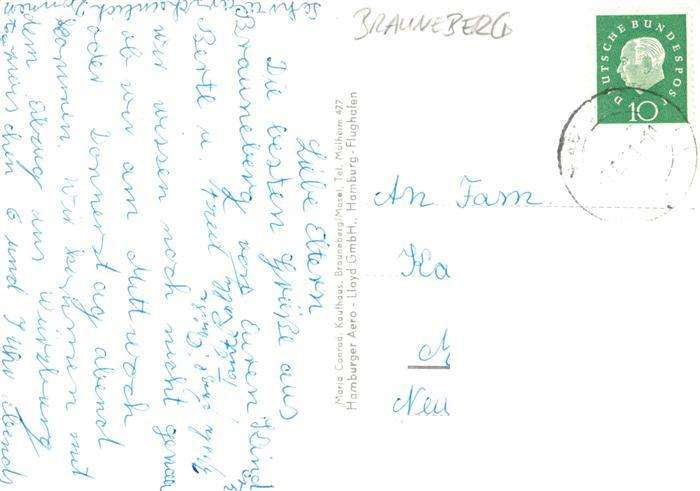 BRAUNEBERG
DEUTSCHE BUNDESPOST
10
Liebe Eltern
Die besten Grüße aus
Brauneberg von Euren Kind
Berte u.
wir wissen noch nicht genau
ob wir am Mittwoch
oder Donnerstag abend
kommen. Wir kommen mit
dem Eilzug aus Würzburg
zwischen 6 und 7 Uhr abends
Maria Conrad, Kaufhaus, Brauneberg/Mosel, Tel. Mülheim 477
Hamburger Aero - Lloyd GmbH., Hamburg - Flughafen
An Fam
Ka
Neu